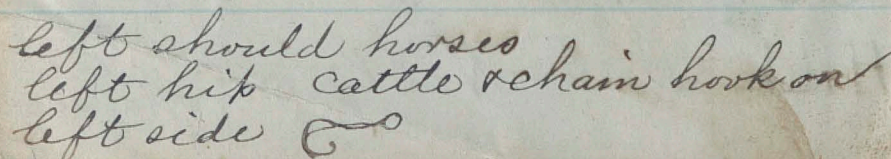 left should horses
left hip cattle & chain hook on
left side